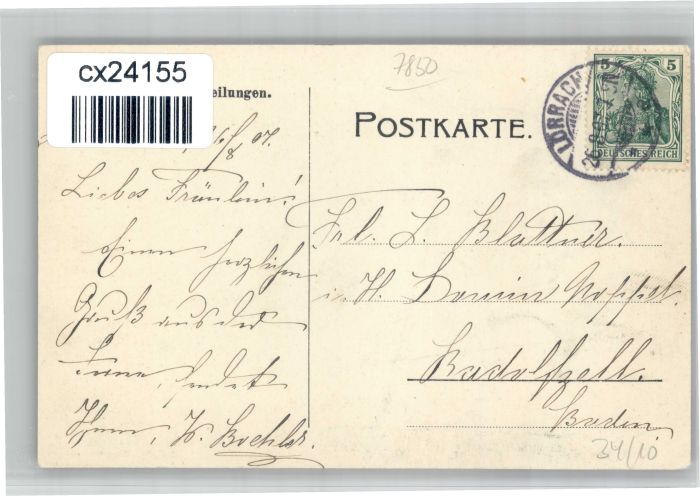 cx24155
7850
eilungen.
POSTKARTE.
LÖRRACH
5 5
DEUTSCHES REICH
26/8 07.
Liebes Fräulein!
Einen herzlichen
Gruß aus der
Ferne, sendet
Ihnen, K. Boehler.
Frl. L. Blattner.
i. H.
Radolfzell.
Baden.
34/10